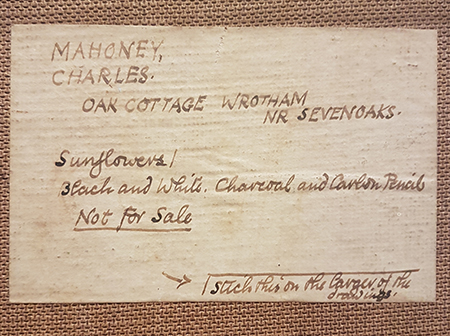 MAHONEY,
CHARLES.
OAK COTTAGE WROTHAM
NR SEVENOAKS.
Sunflowers /
Black and White. Charcoal and Carbon Pencil
Not for Sale
→ / Stick this on the larger of the
drawings.